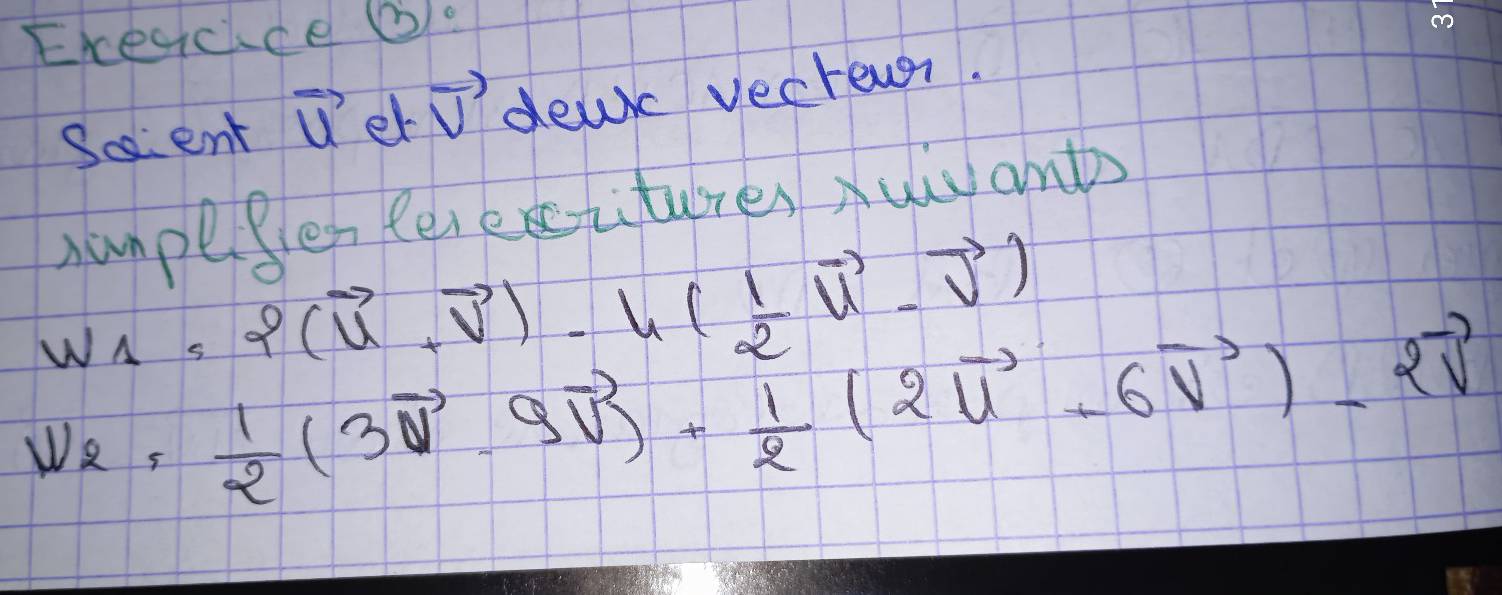 Exercice ③:
Soient u⃗ et v⃗ deux vecteurs.
simplifier les ecritures suivants
W1 = 2(u⃗ + v⃗) - 4(1/2 u⃗ - v⃗)
W2 = 1/2 (3u⃗ - 9v⃗) + 1/2 (2u⃗ + 6v⃗) - 2v⃗
31